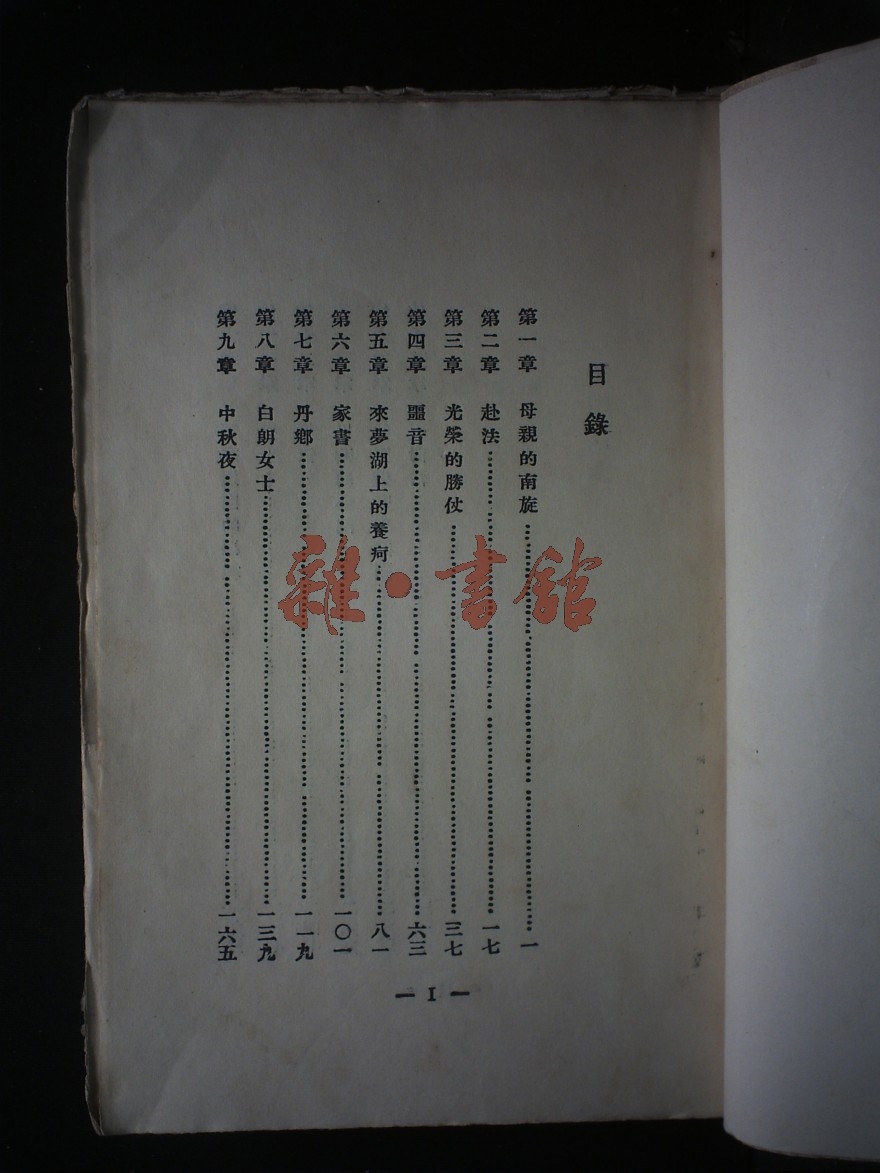 目錄
第一章 母親的南旋……一
第二章 赴法……一七
第三章 光榮的勝仗……三七
第四章 噩音……六三
第五章 來夢湖上的養疴……八一
第六章 家書……一〇一
第七章 丹鄉……一一九
第八章 白朗女士……一三九
第九章 中秋夜……一六五
— I —
雜·書館